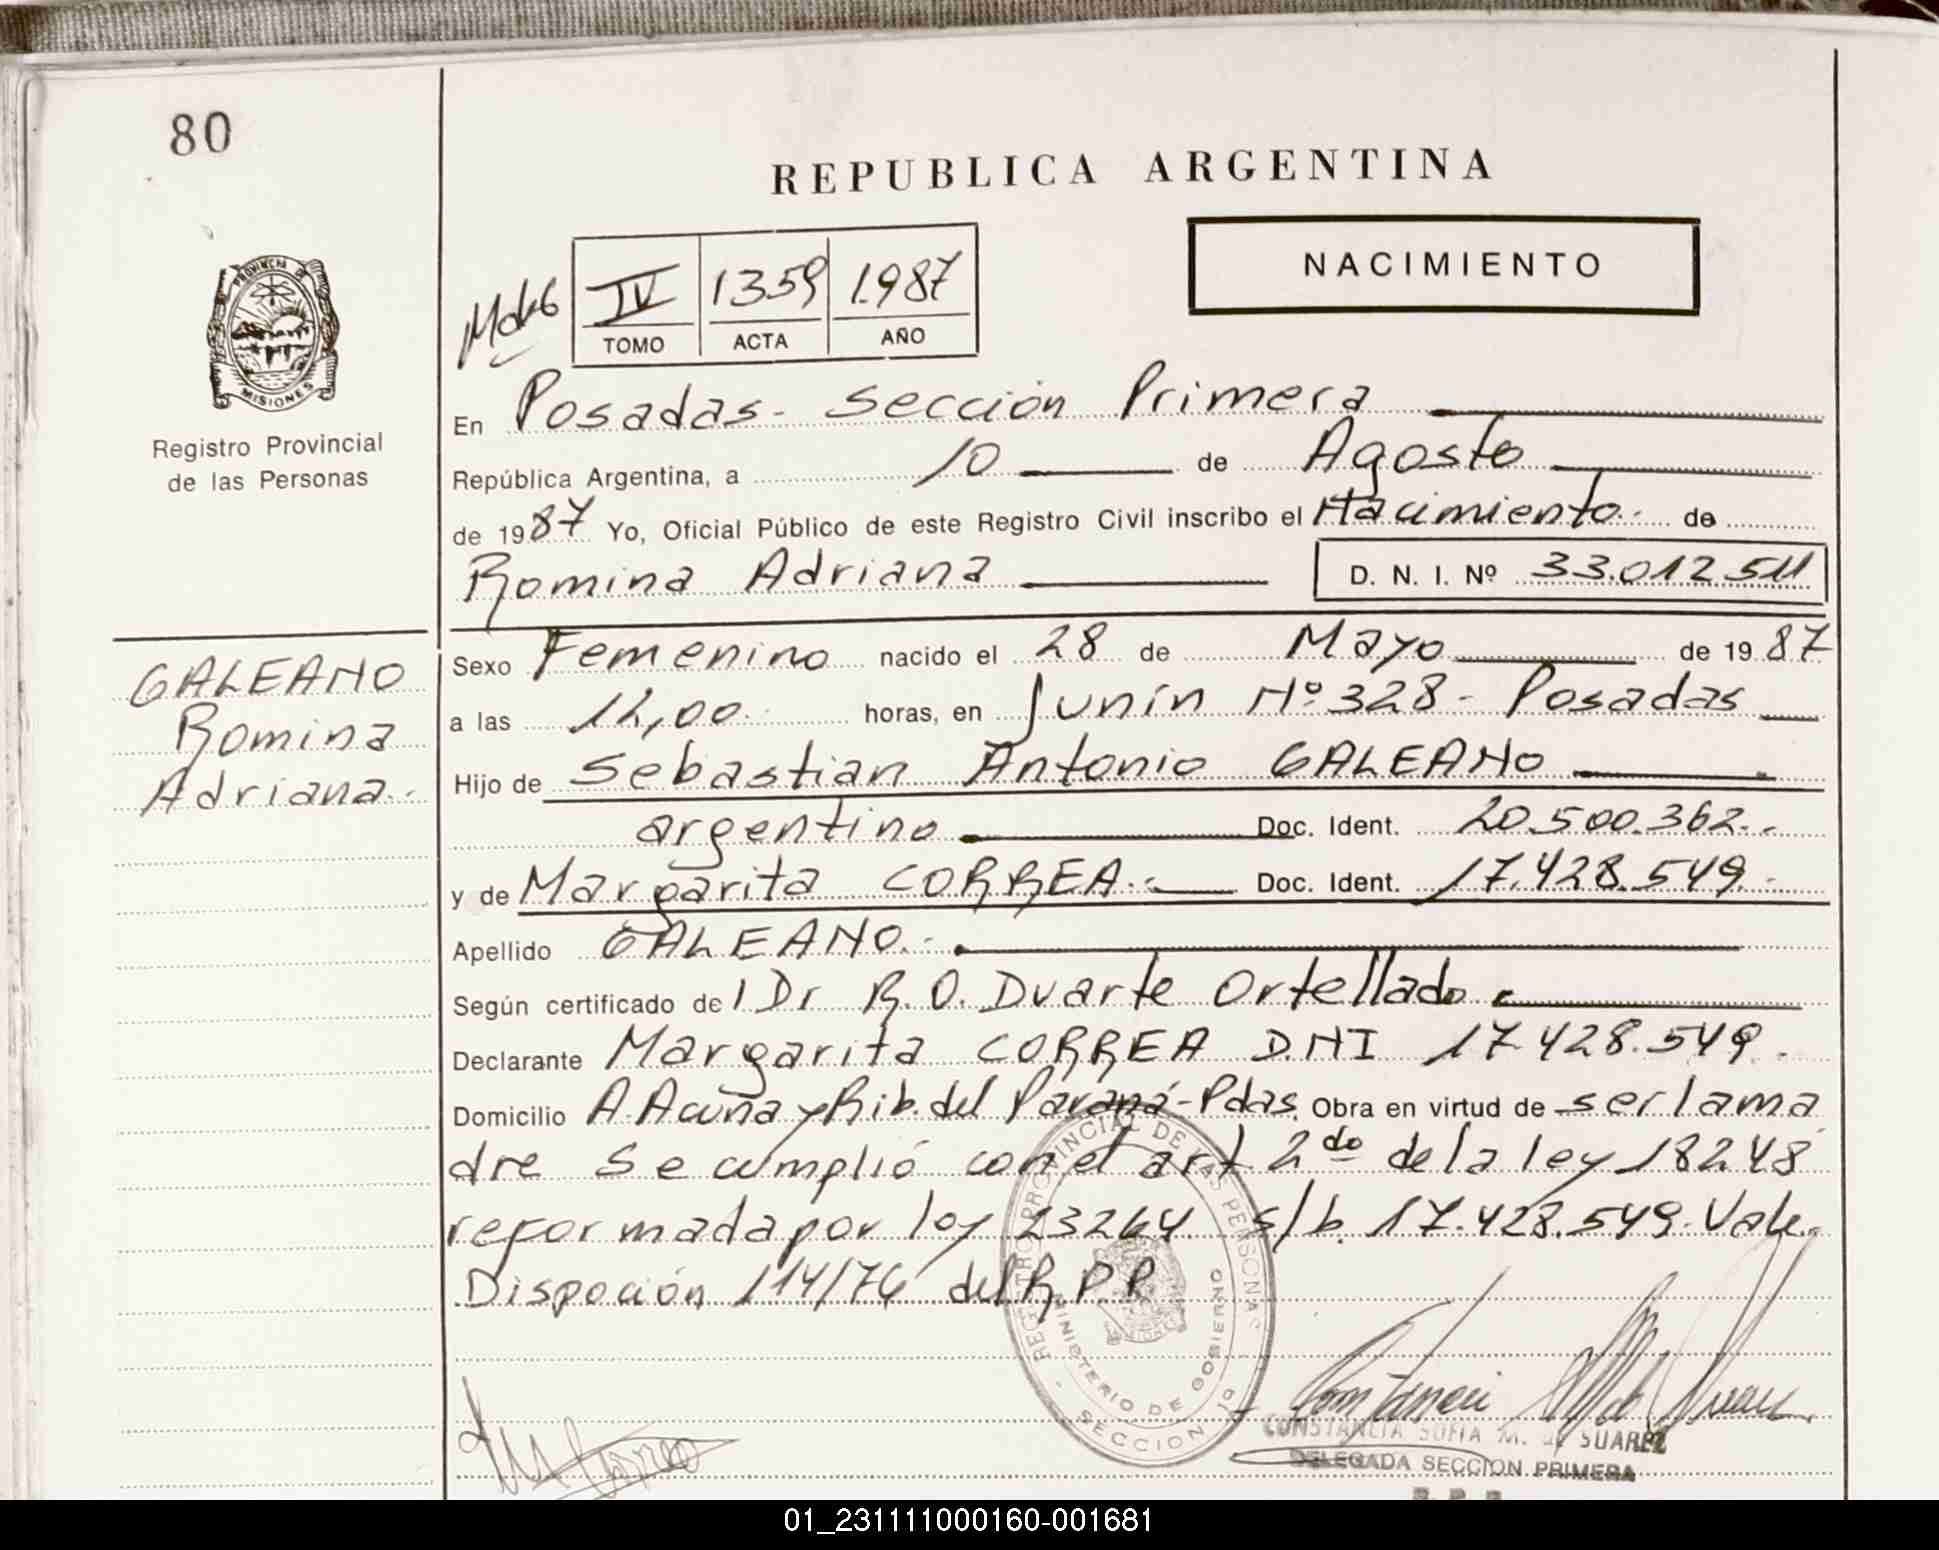 80
REPUBLICA ARGENTINA
NACIMIENTO
IV 1359 1.987
TOMO ACTA AÑO
PROVINCIA DE
MISIONES
Registro Provincial
de las Personas
En Posadas- Sección Primera
República Argentina, a 10 de Agosto
de 1987 Yo, Oficial Público de este Registro Civil inscribo el Nacimiento de
Romina Adriana D. N. I. Nº 33.012.511
GALEANO
Romina
Adriana
Sexo Femenino nacido el 28 de Mayo de 1987
a las 12,00 horas, en Junín Nº 328- Posadas
Hijo de Sebastian Antonio GALEANO
argentino Doc. Ident. 20.500.362.
y de Margarita CORREA Doc. Ident. 17.428.549.
Apellido GALEANO
Según certificado de l Dr R. O. Duarte Ortellado
Declarante Margarita CORREA D.NI 17.428.549.
Domicilio A. Acuña y Rib. del Paraná-Pdas. Obra en virtud de ser la ma
dre Se cumplió con el art 2do de la ley 18248
reformada por ley 23264. s/b. 17.428.549. Vale.
Dispoción 114/76 del R.P.P.
REGISTRO PROVINCIAL DE LAS PERSONAS
MINISTERIO DE GOBIERNO
SECCION 1a
CONSTANCIA SOFIA M. de SUAREZ
DELEGADA SECCION PRIMERA
01_231111000160-001681